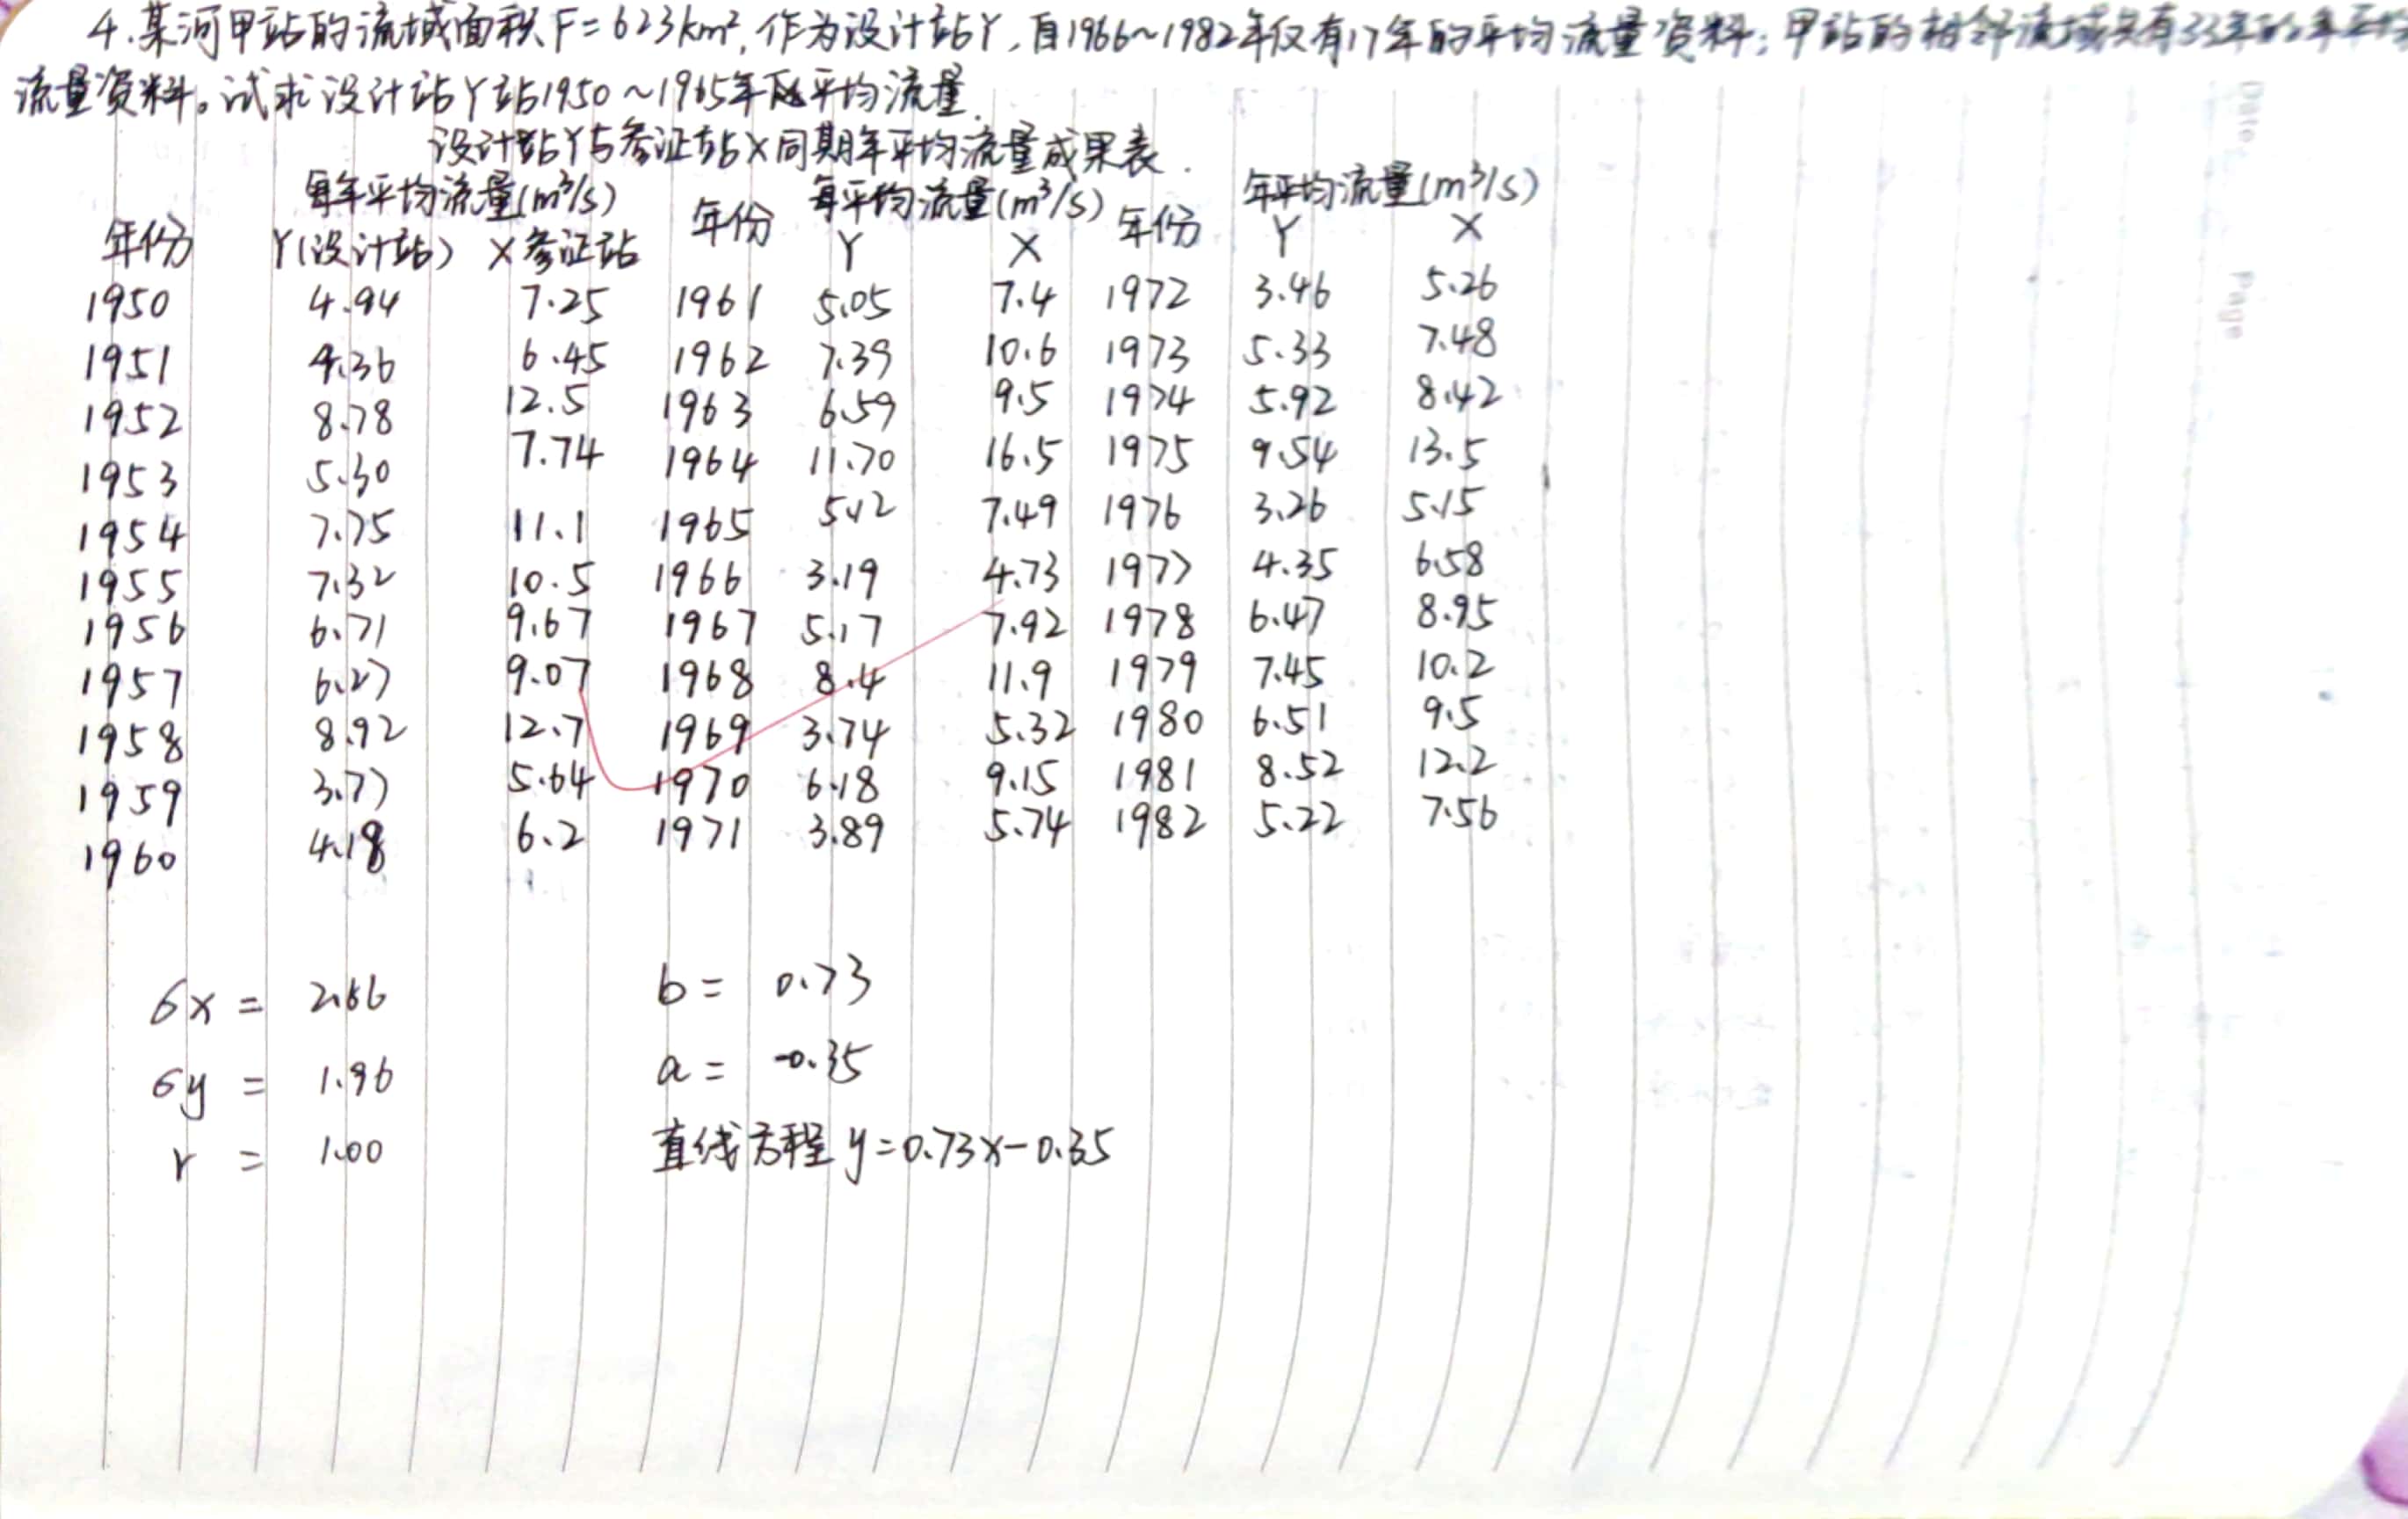 4.某河甲站的流域面积F=623km²,作为设计站Y,自1966~1982年仅有17年的平均流量资料;甲站的相邻流域具有33年的年平均
流量资料。试求设计站Y站1950~1965年平均流量.
设计站Y与参证站X同期年平均流量成果表.
年份 年平均流量(m³/s) 年份 年平均流量(m³/s) 年份 年平均流量(m³/s)
Y(设计站) X参证站 Y X Y X
1950 4.94 7.25 1961 5.05 7.4 1972 3.46 5.26
1951 4.36 6.45 1962 7.39 10.6 1973 5.33 7.48
1952 8.78 12.5 1963 6.59 9.5 1974 5.92 8.42
1953 5.30 7.74 1964 11.70 16.5 1975 9.54 13.5
1954 7.75 11.1 1965 5.12 7.49 1976 3.26 5.15
1955 7.32 10.5 1966 3.19 4.73 1977 4.35 6.58
1956 6.71 9.67 1967 5.17 7.92 1978 6.47 8.95
1957 6.27 9.07 1968 8.4 11.9 1979 7.45 10.2
1958 8.92 12.7 1969 3.74 5.32 1980 6.51 9.5
1959 3.77 5.64 1970 6.18 9.15 1981 8.52 12.2
1960 4.18 6.2 1971 3.89 5.74 1982 5.22 7.56
6x = 2.66 b = 0.73
6y = 1.96 a = -0.35
r = 1.00 直线方程 y=0.73x-0.35
Date
Page